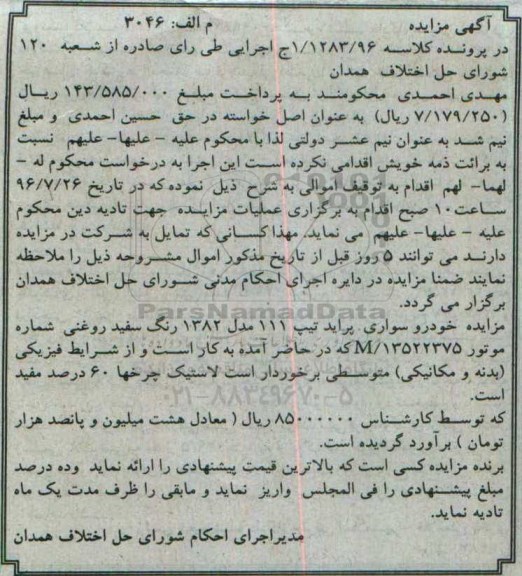 آگهی مزایده م الف: ۳۰۴۶
در پرونده کلاسه ۱/۱۲۸۳/۹۶ج اجرایی طی رای صادره از شعبه ۱۲۰
شورای حل اختلاف همدان
مهدی احمدی محکومند به پرداخت مبلغ ۱۴۳/۵۸۵/۰۰۰ ریال
(۷/۱۷۹/۲۵۰ ریال) به عنوان اصل خواسته در حق حسین احمدی و مبلغ
نیم شد به عنوان نیم عشر دولتی لذا با محکوم علیه - علیها- علیهم نسبت
به برائت ذمه خویش اقدامی نکرده است این اجرا به درخواست محکوم له -
لهما- لهم اقدام به توقیف اموالی به شرح ذیل نموده که در تاریخ ۹۶/۷/۲۶
ساعت۱۰ صبح اقدام به برگزاری عملیات مزایده جهت تادیه دین محکوم
علیه - علیها- علیهم می نماید. مهذا کسانی که تمایل به شرکت در مزایده
دارند می توانند ۵ روز قبل از تاریخ مذکور اموال مشروحه ذیل را ملاحظه
نمایند ضمنا مزایده در دایره اجرای احکام مدنی شورای حل اختلاف همدان
برگزار می گردد.
ParsNamadData
مزایده خودرو سواری پراید تیپ ۱۱۱ مدل ۱۳۸۲ رنگ سفید روغنی شماره
موتور M/۱۳۵۲۲۳۷۵ که در حاضر آمده به کار است و از شرایط فیزیکی
(بدنه و مکانیکی) متوسطی برخوردار است لاستیک چرخها ۶۰ درصد مفید
است.
۰۲۱-۸۸۳۴۹۶۷۰-۵
که توسط کارشناس ۸۵۰۰۰۰۰۰ ریال ( معادل هشت میلیون و پانصد هزار
تومان ) برآورد گردیده است.
برنده مزایده کسی است که بالاترین قیمت پیشنهادی را ارائه نماید وده درصد
مبلغ پیشنهادی را فی المجلس واریز نماید و مابقی را ظرف مدت یک ماه
تادیه نماید.
مدیراجرای احکام شورای حل اختلاف همدان